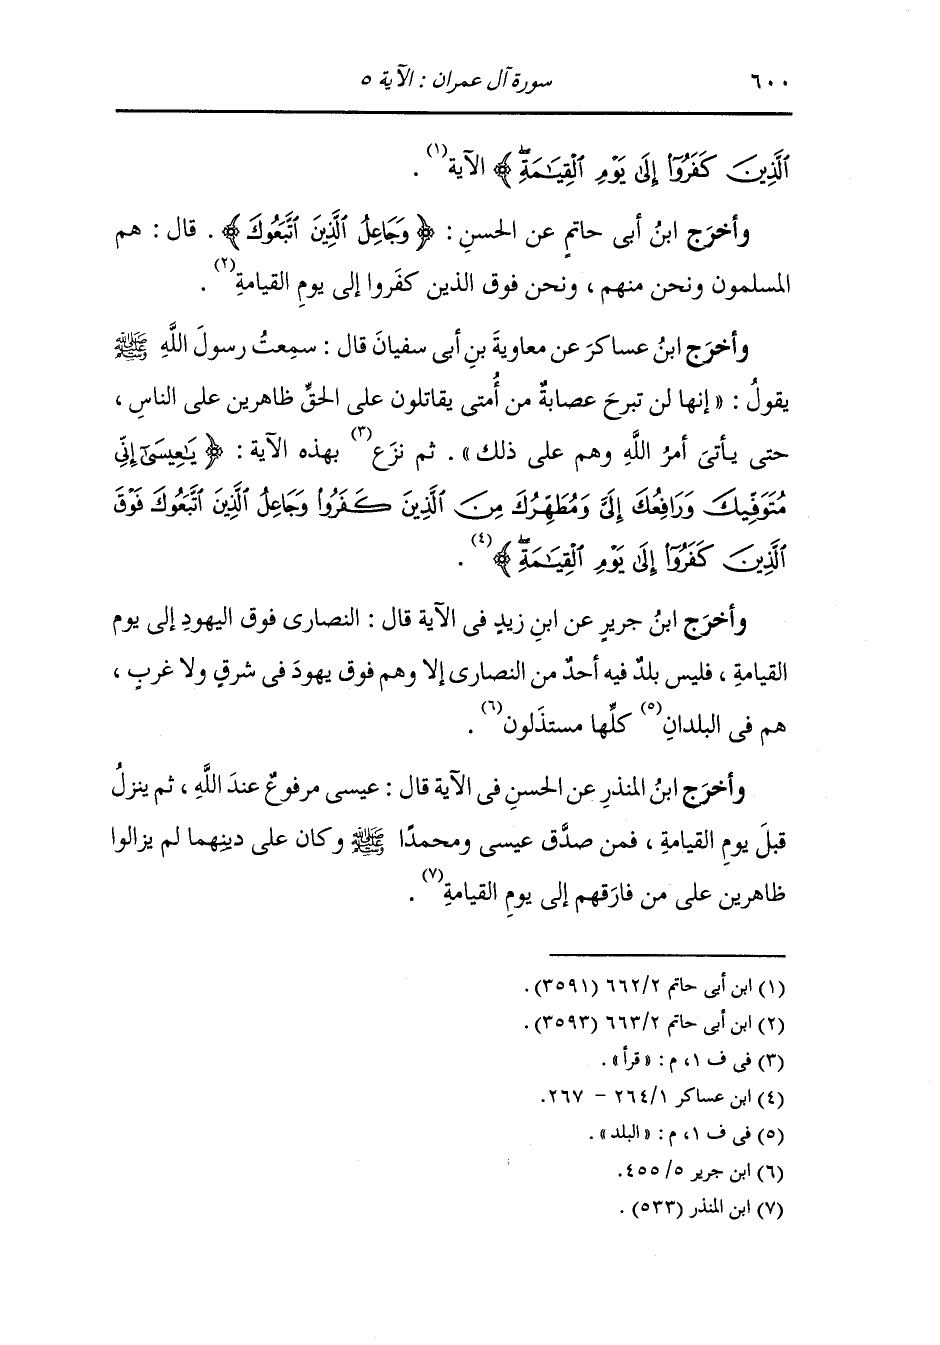 ٦٠٠ سورة آل عمران : الآية ٥
ٱلَّذِينَ كَفَرُوٓا۟ إِلَىٰ يَوْمِ ٱلْقِيَٰمَةِۖ ﴾ الآية(١) .
وأخرَج ابنُ أبى حاتمٍ عن الحسنِ : ﴿ وَجَاعِلُ ٱلَّذِينَ ٱتَّبَعُوكَ ﴾ . قال : هم
المسلمون ونحن منهم ، ونحن فوق الذين كفَروا إلى يومِ القيامةِ(٢) .
وأخرَج ابنُ عساكرَ عن معاويةَ بنِ أبى سفيانَ قال : سمِعتُ رسولَ اللَّهِ ﷺ
يقولُ : « إنها لن تبرحَ عصابةٌ من أُمتى يقاتلون على الحقِّ ظاهرين على الناسِ ،
حتى يأتىَ أمرُ اللَّهِ وهم على ذلك » . ثم نزَع(٣) بهذه الآية : ﴿ يَٰعِيسَىٰٓ إِنِّى
مُتَوَفِّيكَ وَرَافِعُكَ إِلَىَّ وَمُطَهِّرُكَ مِنَ ٱلَّذِينَ كَفَرُوا۟ وَجَاعِلُ ٱلَّذِينَ ٱتَّبَعُوكَ فَوْقَ
ٱلَّذِينَ كَفَرُوٓا۟ إِلَىٰ يَوْمِ ٱلْقِيَٰمَةِۖ ﴾(٤) .
وأخرَج ابنُ جريرٍ عن ابنِ زيدٍ فى الآية قال : النصارى فوق اليهودِ إلى يوم
القيامةِ ، فليس بلدٌ فيه أحدٌ من النصارى إلا وهم فوق يهودَ فى شرقٍ ولا غربٍ ،
هم فى البلدانِ(٥) كلِّها مستذَلون(٦) .
وأخرَج ابنُ المنذرِ عن الحسنِ فى الآية قال : عيسى مرفوعٌ عندَ اللَّهِ ، ثم ينزلُ
قبلَ يومِ القيامةِ ، فمن صدَّق عيسى ومحمدًا ﷺ وكان على دينِهما لم يزالوا
ظاهرين على من فارَقهم إلى يومِ القيامةِ(٧) .
(١) ابن أبى حاتم ٦٦٢/٢ (٣٥٩١).
(٢) ابن أبى حاتم ٦٦٣/٢ (٣٥٩٣).
(٣) فى ف ١، م : « قرأ » .
(٤) ابن عساكر ٢٦٤/١ - ٢٦٧.
(٥) فى ف ١، م : « البلد » .
(٦) ابن جرير ٤٥٥/٥.
(٧) ابن المنذر (٥٣٣) .